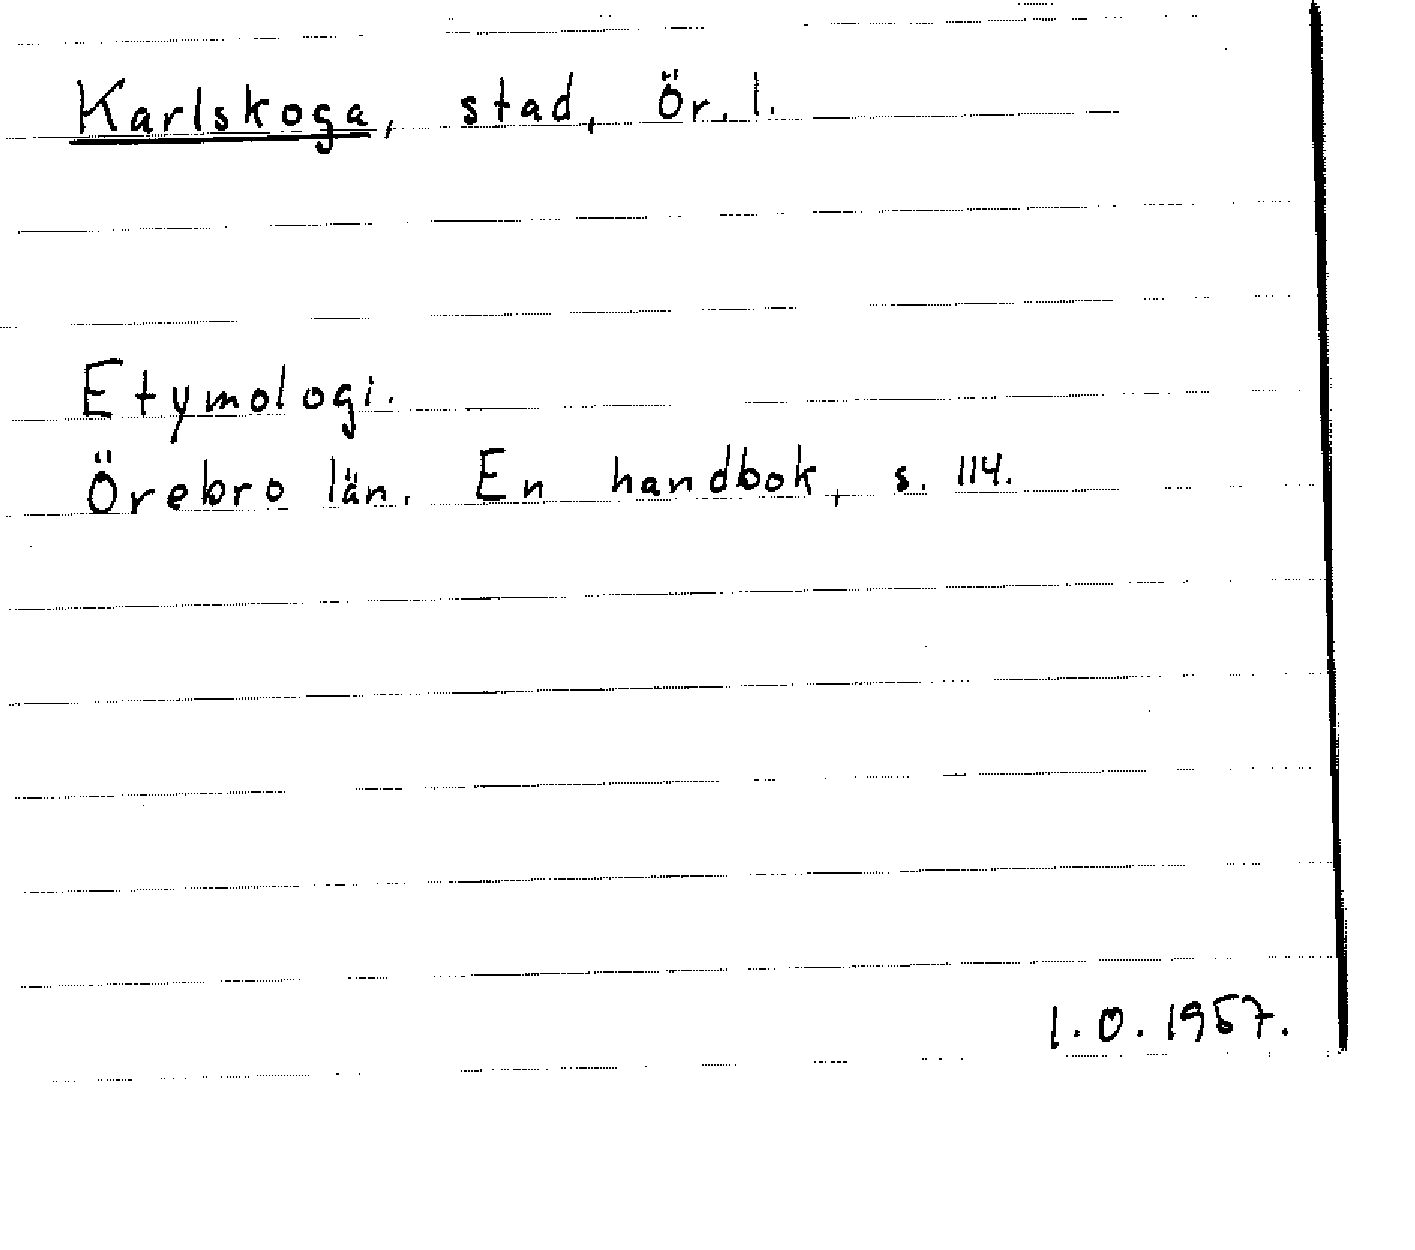 Karlskoga, stad, Ör. l.
Etymologi.
Örebro län. En handbok, s. 114.
1.0.1957.